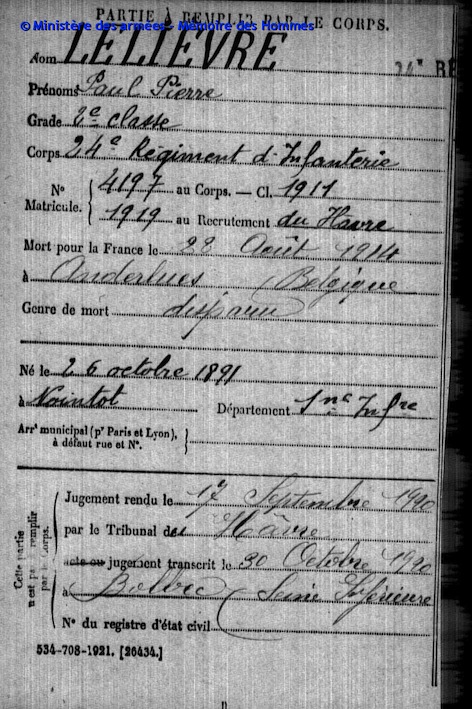 PARTIE À REMPLIR PAR LE CORPS.
© Ministère des armées - Mémoire des Hommes
Nom LELIEVRE
Prénoms Paul Pierre
Grade 2e classe
Corps 24e Régiment d'Infanterie
N° Matricule. { 4197 au Corps. — Cl. 1911
1919 au Recrutement du Havre
Mort pour la France le 22 Août 1914
à Anderlues (Belgique
Genre de mort disparu
Né le 26 octobre 1891
à Nointot Département Sne Infre
Arrt municipal (pr Paris et Lyon), à défaut rue et N°. }
Cette partie n'est pas à remplir par le Corps.
Jugement rendu le 17 Septembre 1920
par le Tribunal du Hâvre
acte ou jugement transcrit le 30 Octobre 1920
à Bolbec (Seine Inférieure
N° du registre d'état civil
534-708-1921. [26434.]